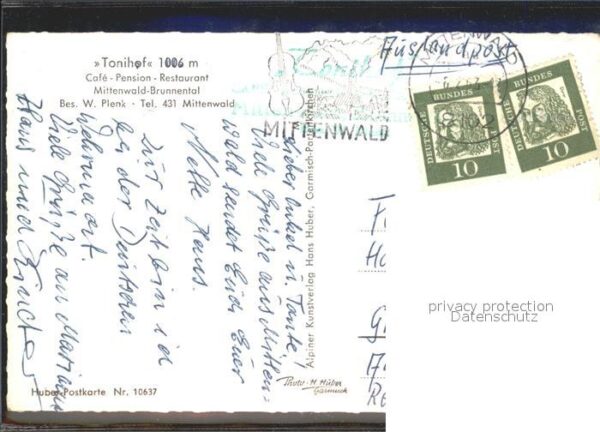 »Tonihof« 1006 m
Café - Pension - Restaurant
Mittenwald-Brunnental
Bes. W. Plenk · Tel. 431 Mittenwald
Auslandpost
MITTENWALD
DEUTSCHE BUNDESPOST
10
DEUTSCHE BUNDESPOST
10
Lieber Onkel u. Tante!
Viele Grüße aus Mitten-
wald sendet Euch Euer
Neffe Hans.
Zur Zeit bin ich
bei der Deutschen
Viele Grüße an
Hans und
Alpiner Kunstverlag Hans Huber, Garmisch-Partenkirchen
Photo-H. Huber
Garmisch
Huber-Postkarte Nr. 10637
privacy protection
Datenschutz